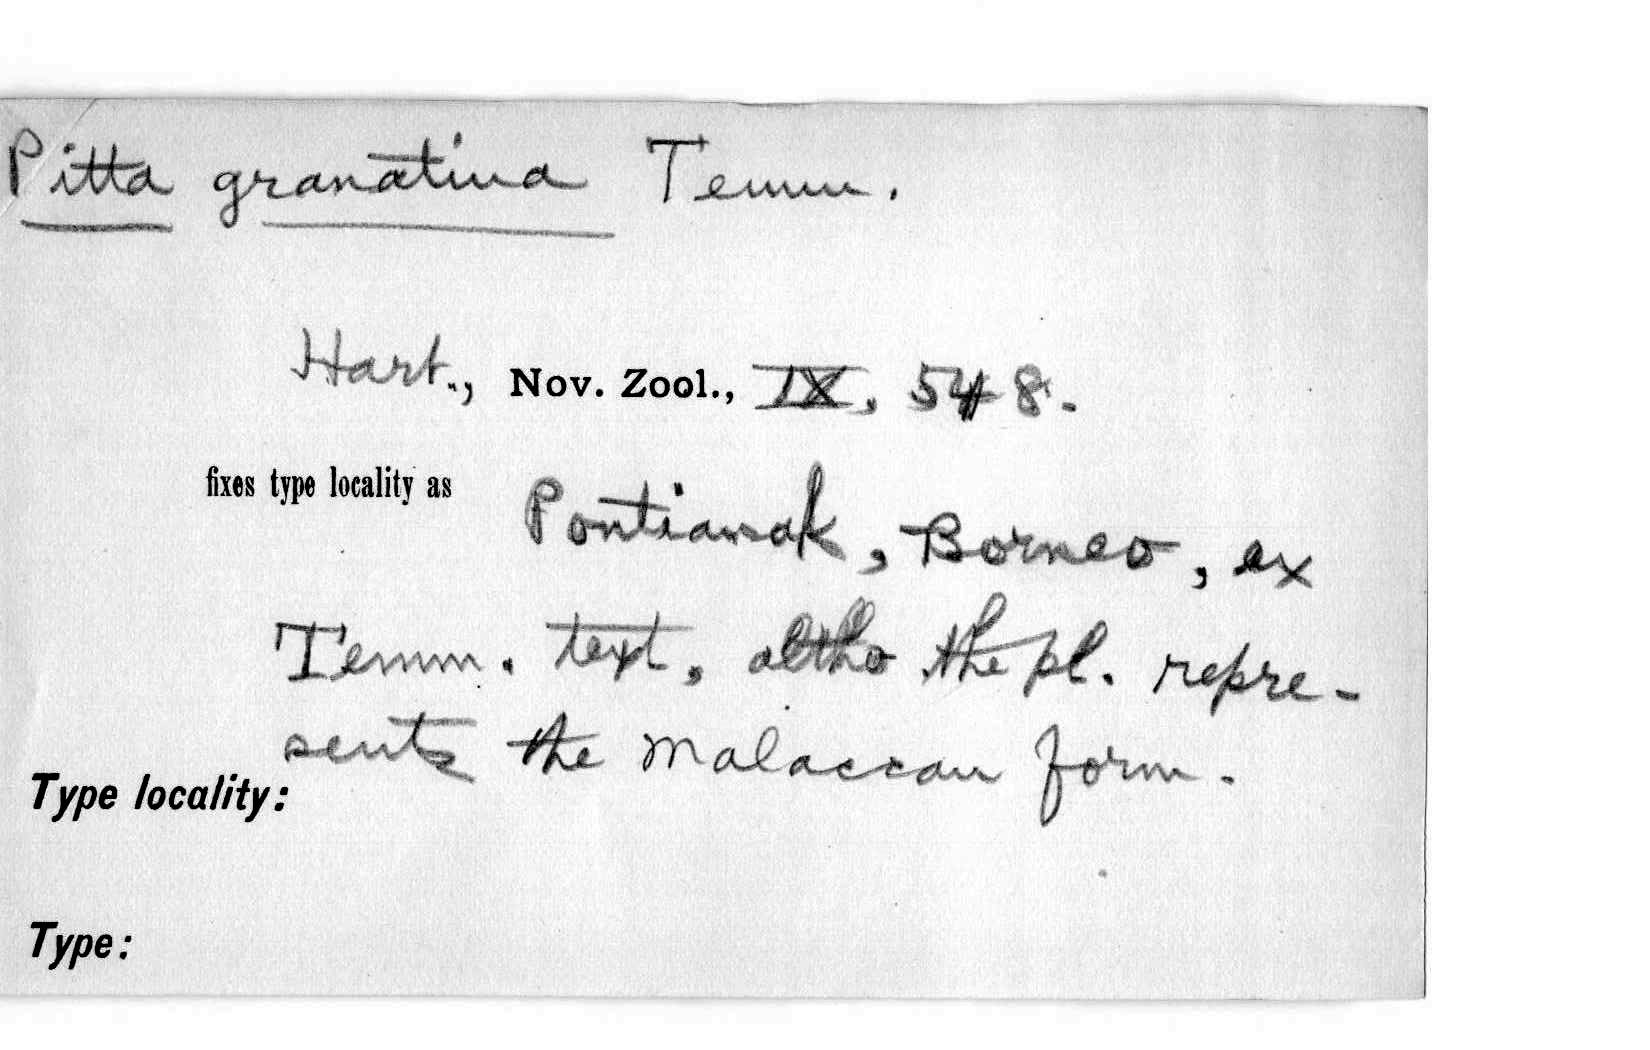 Pitta granatina Temm.
Hart., Nov. Zool., IX, 548.
fixes type locality as Pontianak, Borneo, ex
Temm. text, altho the pl. repre-
sents the Malaccan form.
Type locality:
Type: